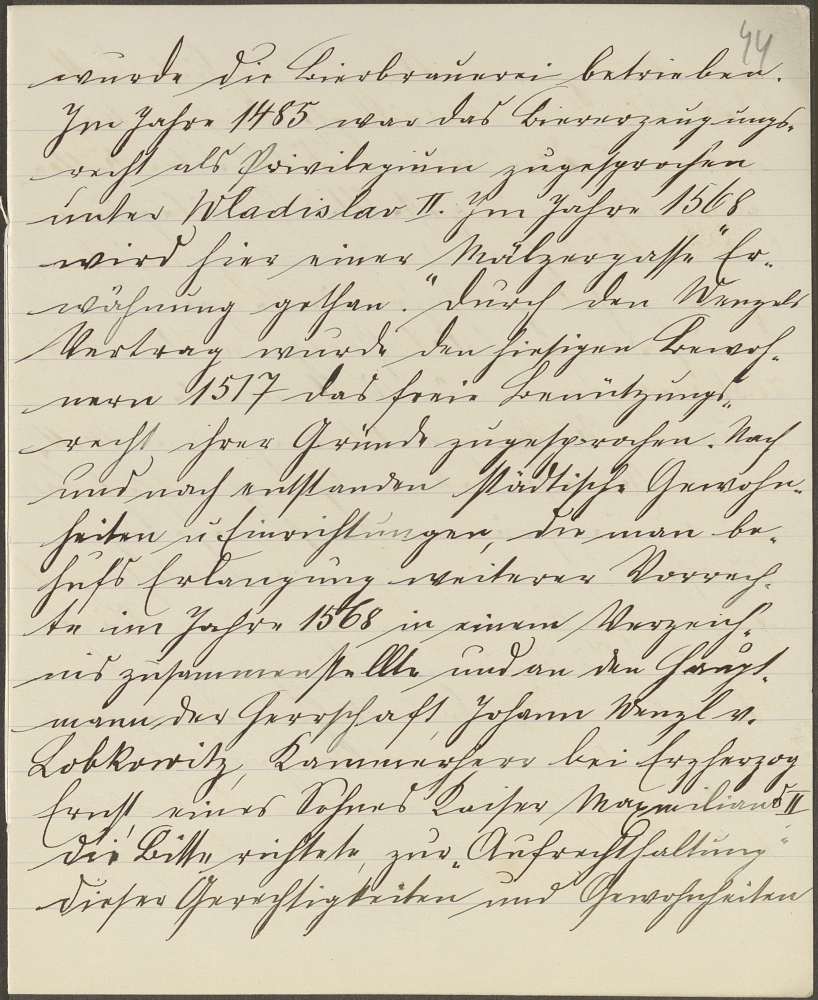 44
wurde die Bierbrauerei betrieben.
Im Jahre 1485 war das Biererzeugungs-
recht als Privilegium zugesprochen
unter Wladislav II. Im Jahre 1568
wird hier einer „Mälzergasse“ Er-
wähnung gethan. Durch den Wenzels
Vertrag wurde den hiesigen Bewoh-
nern 1517 das freie Benützungs-
recht ihrer Gründe zugesprochen. Nach
und nach entstanden städtische Gewohn-
heiten u. Einrichtungen, die man be-
hufs Erlangung weiterer Vorrech-
te im Jahre 1568 in einem Verzeich-
nis zusammenstellte und an den Haupt-
mann der Herrschaft, Johann Wenzl v.
Lobkowitz, Kammerherr bei Erzherzog
Ernst, eines Sohnes Kaiser Maxmilians II
die Bitte richtete, zur „Aufrechthaltung“
dieser Gerechtigkeiten und Gewohnheiten